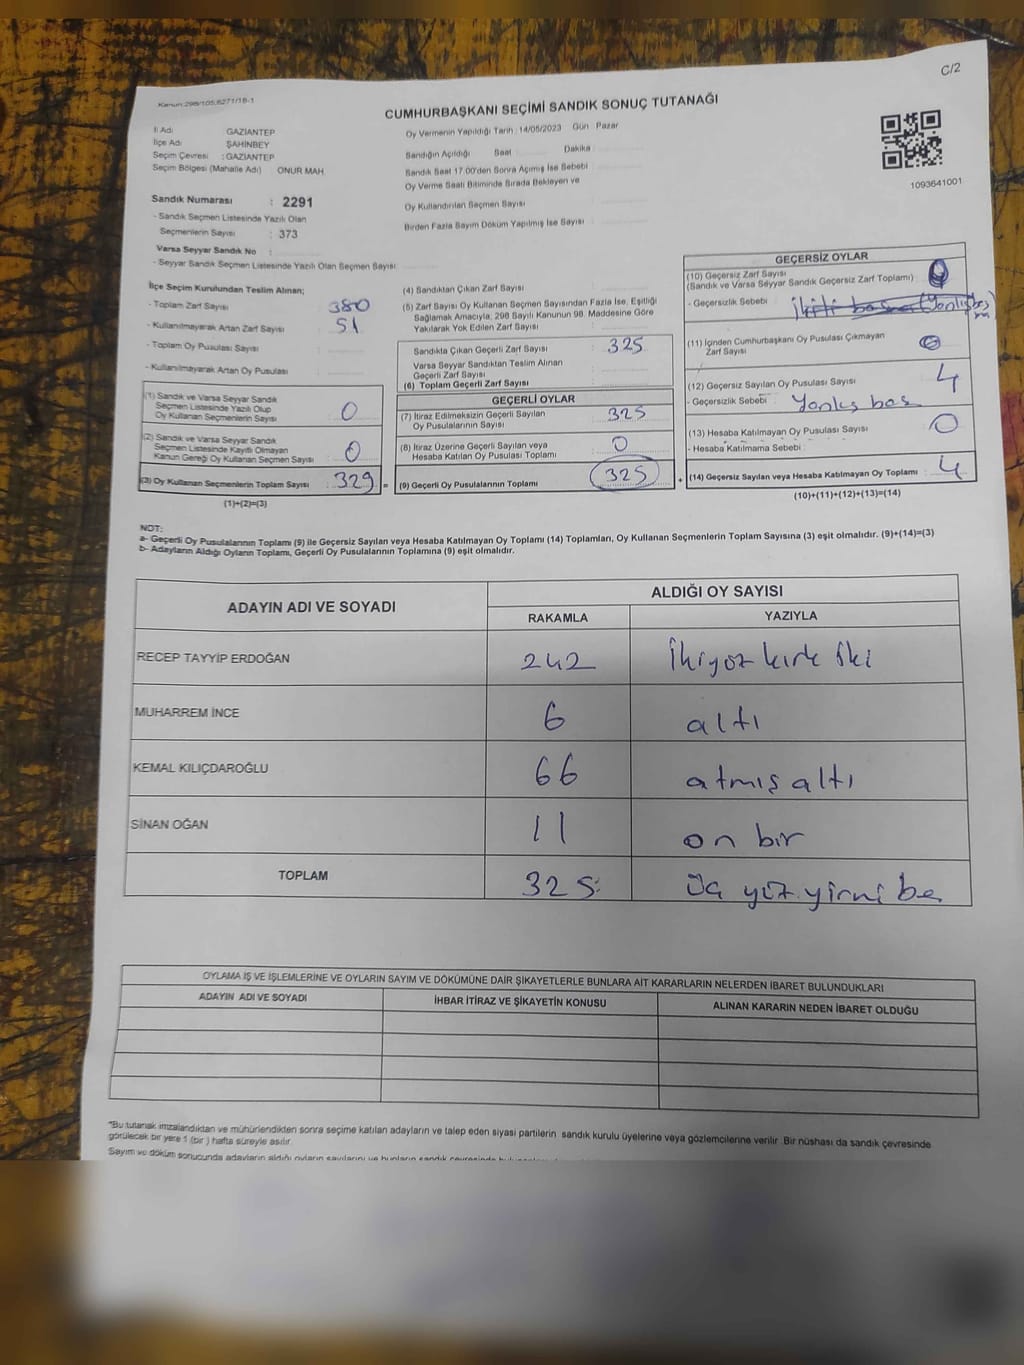 C/2
Kanun:298/105,6271/18-1
CUMHURBAŞKANI SEÇİMİ SANDIK SONUÇ TUTANAĞI
İl Adı GAZİANTEP
İlçe Adı ŞAHİNBEY
Seçim Çevresi : GAZİANTEP
Seçim Bölgesi (Mahalle Adı) ONUR MAH
Oy Vermenin Yapıldığı Tarih : 14/05/2023 Gün Pazar
Sandığın Açıldığı Saat Dakika
Sandık Saat 17.00'den Sonra Açılmış İse Sebebi
Oy Verme Saati Bitiminde Sırada Bekleyen ve
Oy Kullandırılan Seçmen Sayısı
Birden Fazla Sayım Döküm Yapılmış İse Sayısı
1093641001
Sandık Numarası : 2291
- Sandık Seçmen Listesinde Yazılı Olan
Seçmenlerin Sayısı : 373
Varsa Seyyar Sandık No :
- Seyyar Sandık Seçmen Listesinde Yazılı Olan Seçmen Sayısı
İlçe Seçim Kurulundan Teslim Alınan;
- Toplam Zarf Sayısı : 380
- Kullanılmayarak Artan Zarf Sayısı : 51
- Toplam Oy Pusulası Sayısı :
- Kullanılmayarak Artan Oy Pusulası :
(1) Sandık ve Varsa Seyyar Sandık
Seçmen Listesinde Yazılı Olup
Oy Kullanan Seçmenlerin Sayısı : 0
(2) Sandık ve Varsa Seyyar Sandık
Seçmen Listesinde Kayıtlı Olmayan
Kanun Gereği Oy Kullanan Seçmen Sayısı : 0
(3) Oy Kullanan Seçmenlerin Toplam Sayısı : 329 =
(1)+(2)=(3)
(4) Sandıktan Çıkan Zarf Sayısı :
(5) Zarf Sayısı Oy Kullanan Seçmen Sayısından Fazla İse, Eşitliği
Sağlamak Amacıyla, 298 Sayılı Kanunun 98. Maddesine Göre
Yakılarak Yok Edilen Zarf Sayısı :
Sandıkta Çıkan Geçerli Zarf Sayısı : 325
Varsa Seyyar Sandıktan Teslim Alınan
Geçerli Zarf Sayısı :
(6) Toplam Geçerli Zarf Sayısı :
GEÇERLİ OYLAR
(7) İtiraz Edilmeksizin Geçerli Sayılan
Oy Pusulalarının Sayısı : 325
(8) İtiraz Üzerine Geçerli Sayılan veya
Hesaba Katılan Oy Pusulası Toplamı : 0
(9) Geçerli Oy Pusulalarının Toplamı : 325 +
GEÇERSİZ OYLAR
(10) Geçersiz Zarf Sayısı
(Sandık ve Varsa Seyyar Sandık Geçersiz Zarf Toplamı) :
- Geçersizlik Sebebi :
(11) İçinden Cumhurbaşkanı Oy Pusulası Çıkmayan
Zarf Sayısı : 0
(12) Geçersiz Sayılan Oy Pusulası Sayısı : 4
- Geçersizlik Sebebi : Yanlış bas
(13) Hesaba Katılmayan Oy Pusulası Sayısı : 0
- Hesaba Katılmama Sebebi :
(14) Geçersiz Sayılan veya Hesaba Katılmayan Oy Toplamı : 4
(10)+(11)+(12)+(13)=(14)
NOT:
a- Geçerli Oy Pusulalarının Toplamı (9) ile Geçersiz Sayılan veya Hesaba Katılmayan Oy Toplamı (14) Toplamları, Oy Kullanan Seçmenlerin Toplam Sayısına (3) eşit olmalıdır. (9)+(14)=(3)
b- Adayların Aldığı Oyların Toplamı, Geçerli Oy Pusulalarının Toplamına (9) eşit olmalıdır.
ADAYIN ADI VE SOYADI ALDIĞI OY SAYISI
RAKAMLA YAZIYLA
RECEP TAYYİP ERDOĞAN 242 İkiyüz kırk iki
MUHARREM İNCE 6 altı
KEMAL KILIÇDAROĞLU 66 atmış altı
SİNAN OĞAN 11 on bir
TOPLAM 325 Üç yüz yirmi be
OYLAMA İŞ VE İŞLEMLERİNE VE OYLARIN SAYIM VE DÖKÜMÜNE DAİR ŞİKAYETLERLE BUNLARA AİT KARARLARIN NELERDEN İBARET BULUNDUKLARI
ADAYIN ADI VE SOYADI İHBAR İTİRAZ VE ŞİKAYETİN KONUSU ALINAN KARARIN NEDEN İBARET OLDUĞU
"Bu tutanak imzalandıktan ve mühürlendikten sonra seçime katılan adayların ve talep eden siyasi partilerin sandık kurulu üyelerine veya gözlemcilerine verilir. Bir nüshası da sandık çevresinde
görülecek bir yere 1 (bir ) hafta süreyle asılır.
Sayım ve döküm sonucunda adayların aldığı oyların sayılarını ve bunların sandık çevresinde